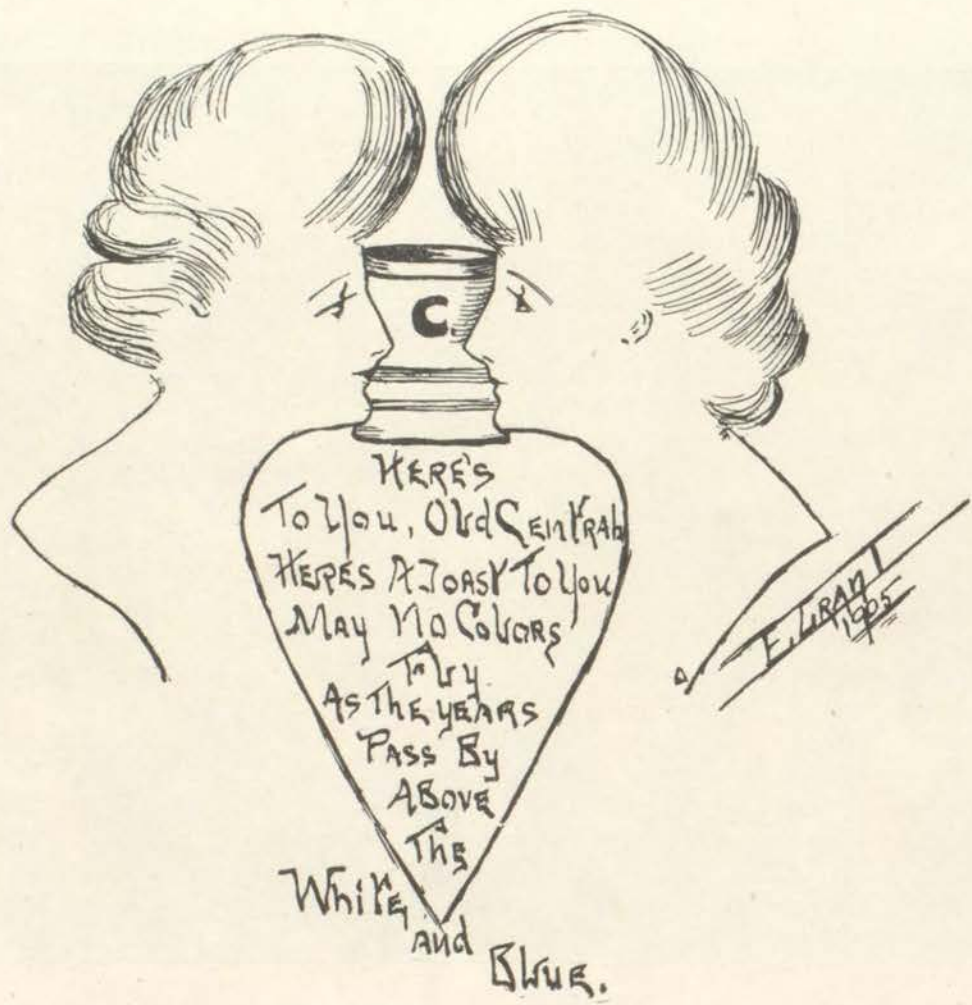 C
HERE'S
To You, Old Central
HERES A TOAST To You
MAY NO COLORS
FLY
AS THE YEARS
PASS By
ABOVE
THE
White
and
Blue.
E. GRANT
1905